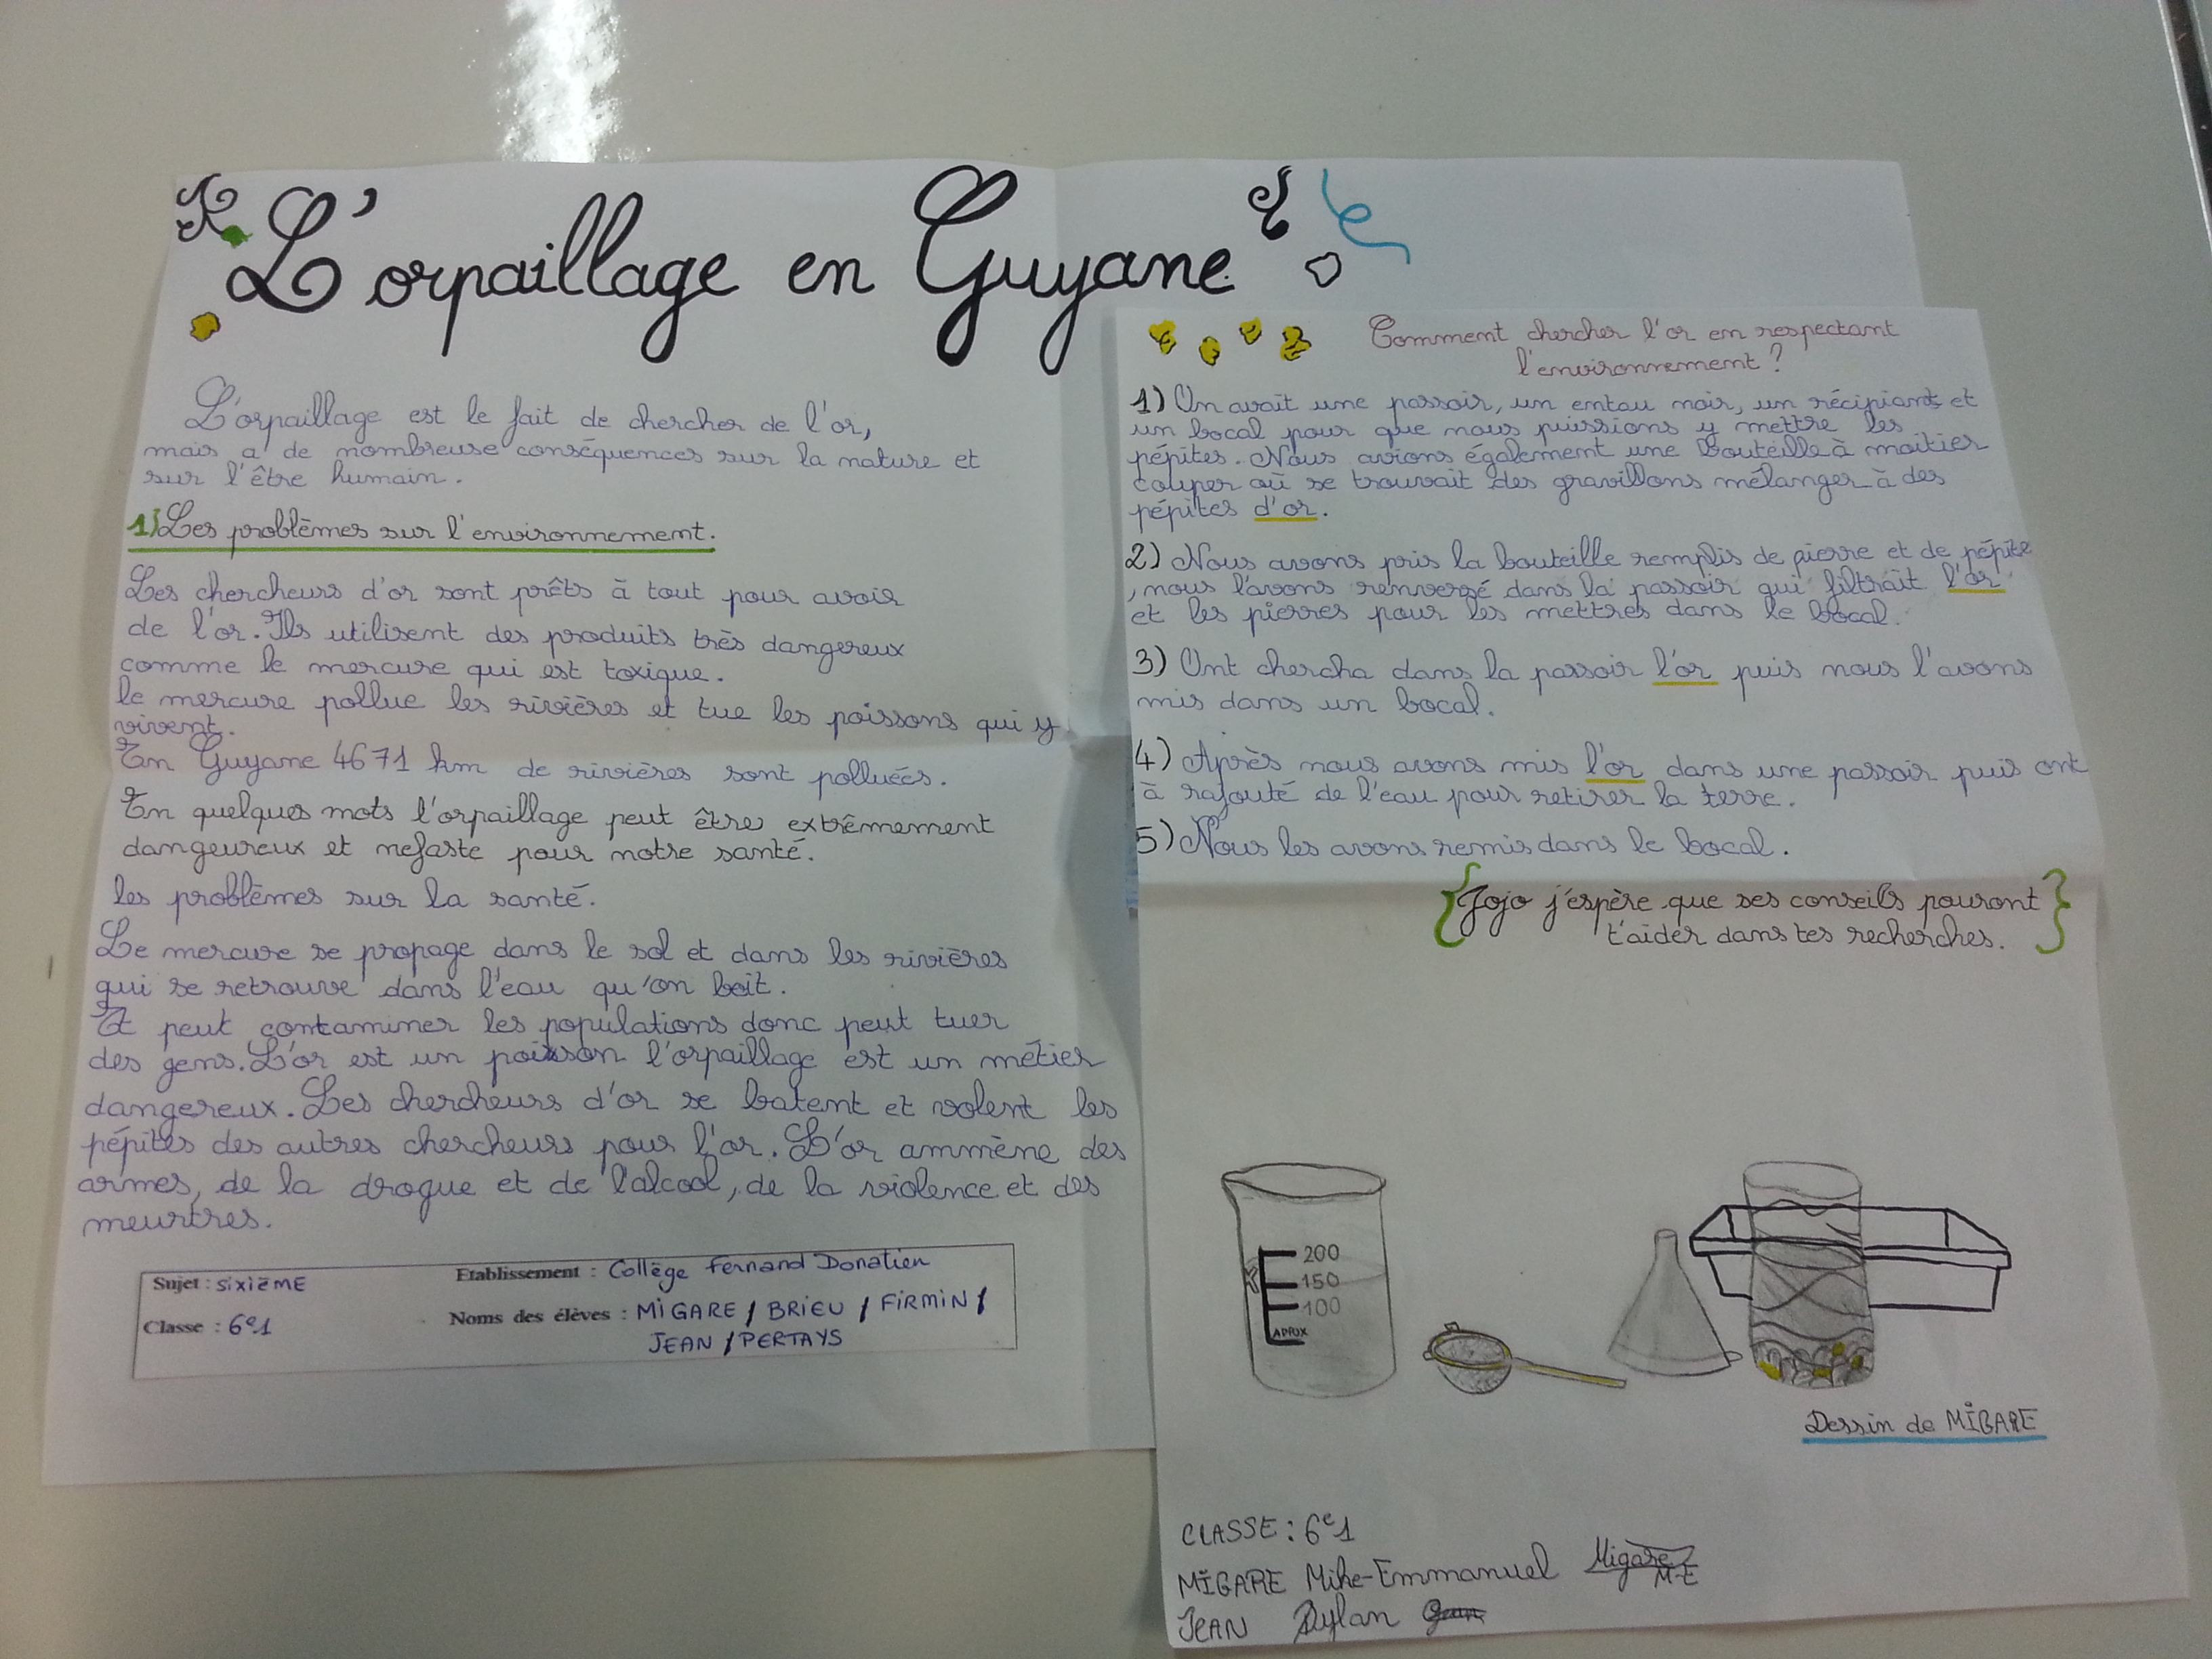 L'orpaillage en Guyane
L'orpaillage est le fait de chercher de l'or,
mais a de nombreuse conséquences sur la nature et
sur l'être humain.
1) Les problèmes sur l'environnement.
Les chercheurs d'or sont prêts à tout pour avoir
de l'or. Ils utilisent des produits très dangereux
comme le mercure qui est toxique.
le mercure pollue les rivières et tue les poissons qui y
vivent.
En Guyane 4671 km de rivières sont polluées.
En quelques mots l'orpaillage peut être extrêmement
dangeureux et nefaste pour notre santé.
les problèmes sur la santé.
Le mercure se propage dans le sol et dans les rivières
qui se retrouve dans l'eau qu'on boit.
Et peut contaminer les populations donc peut tuer
des gens. L'or est un poisson l'orpaillage est un métier
dangereux. Les chercheurs d'or se batent et volent les
pépites des autres chercheurs pour l'or. L'or ammène des
armes, de la drogue et de l'alcool, de la violence et des
meurtres.
Sujet : SIXIÈME
Etablissement : Collège Fernand Donatien
Classe : 6e1
Noms des élèves : MIGARE / BRIEU / FIRMIN /
JEAN / PERTAYS
Comment chercher l'or en respectant
l'environnement ?
1) On avait une passoir, un entau noir, un récipiants et
un bocal pour que nous puissions y mettre les
pépites. Nous avions également une bouteille à moitier
couper où se trouvait des gravillons mélanger à des
pépites d'or.
2) Nous avons pris la bouteille remplis de pierre et de pépite
, nous l'avons renversé dans la passoir qui filtrait l'or
et les pierres pour les mettres dans le bocal.
3) Ont chercha dans la passoir l'or puis nous l'avons
mis dans un bocal.
4) Après nous avons mis l'or dans une passoir puis ont
à rajouté de l'eau pour retirer la terre.
5) Nous les avons remis dans le bocal.
{Jojo j'espère que ses conseils pouront
t'aider dans tes recherches.}
200
150
100
APROX
Dessin de MIGARE
CLASSE : 6e1
MIGARE Mike-Emmanuel Migare M-E
JEAN Dylan